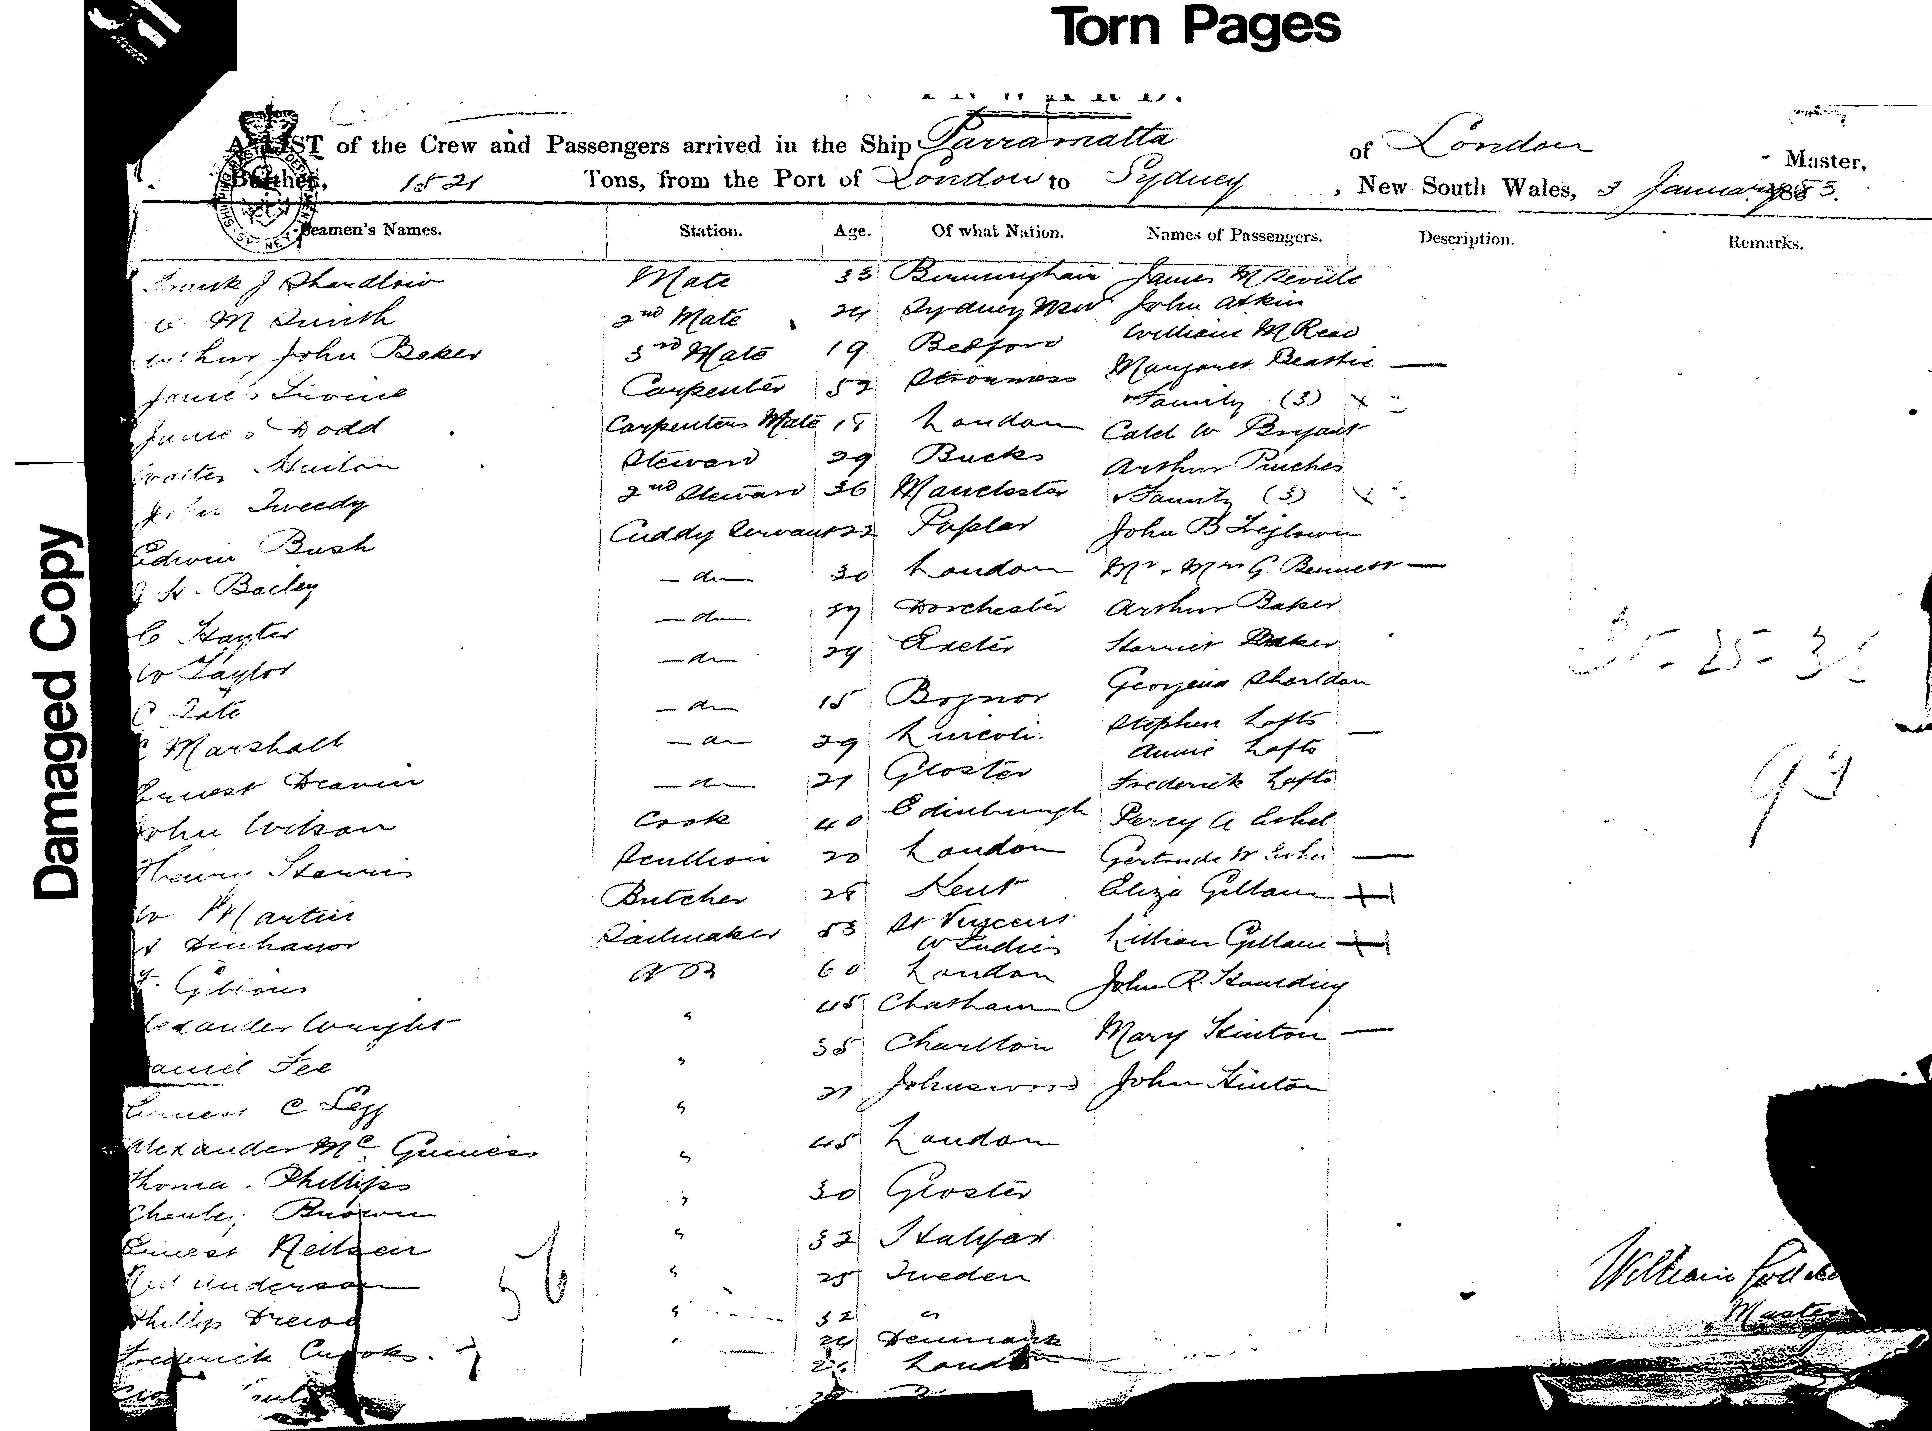 Torn Pages
Damaged Copy
A LIST of the Crew and Passengers arrived in the Ship Parramatta of London Master,
Burthen, 1521 Tons, from the Port of London to Sydney, New South Wales, 3 January 1883.
Seamen's Names. Station. Age. Of what Nation. Names of Passengers. Description. Remarks.
Frank J Shardlow Mate 33 Birmingham James M Seville
M Smith 2nd Mate 24 Sydney NSW John Atkin
Arthur John Baker 3rd Mate 19 Bedford William M Read
James Irvine Carpenter 52 Stromness Margaret Beattie —
Family (3) x
James Dodd Carpenters Mate 18 London Caleb W Bryant
Walter Steward 29 Bucks Arthur Pinches
John Tweedy 2nd Steward 36 Manchester Family (3) x
Edwin Bush Cuddy Servant 22 Poplar John B
J H. Bailey — do — 30 London Mr. Mrs G. Bennett —
C Hayter — do — Dorchester Arthur Baker
W Taylor — do — 29 Exeter Harriet Baker
C Tate — do — 15 Bognor Georgina
C Marshall — do — 29 Lincoln Stephen Lofts —
Annie Lofts
Ernest Deavin — do — 21 Gloster Frederick Lofts
John Wilson Cook 40 Edinburgh Percy A
Henry Scullion 20 London Gertrude —
W Martin Butcher 25 Kent Eliza Gillam
Sailmaker 53 St Vincent W Indies Lillian Gillam
Gibbons AB 60 London John R.
Alexander Wright " 45 Chatham
Daniel Fee " 35 Charlton Mary Hinton —
Ernest C Legg " 21 Johnswood John Hinton
Alexander Mc Guiness " 45 London
Thomas Phillips " 30 Gloster
Charles Brown " 32 Halifax
Ernest Neilsen " 25 Sweden
Anderson " 32 "
Phillip " Denmark
Frederick Crooks London
56
93
William
Master